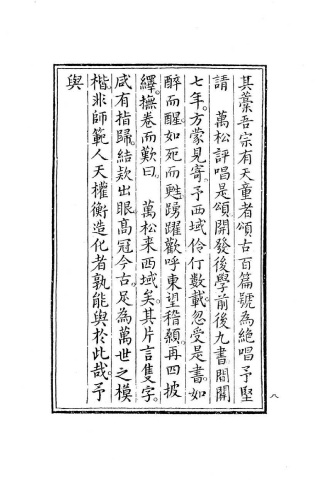 其藁吾宗有天童者頌古百篇號為絕唱予堅
請　萬松評唱是頌開發後學前後九書間關
七年。方蒙見寄。予西域伶仃數載忽受是書如
醉而醒。如死而甦。踴躍歡呼東望稽顙。再四披
繹。撫卷而歎曰。　萬松来西域矣。其片言隻字。
咸有指歸。結款出眼。高冠今古。足為萬世之模
楷。非師範人天。權衡造化者。孰能與於此哉。予
與
八